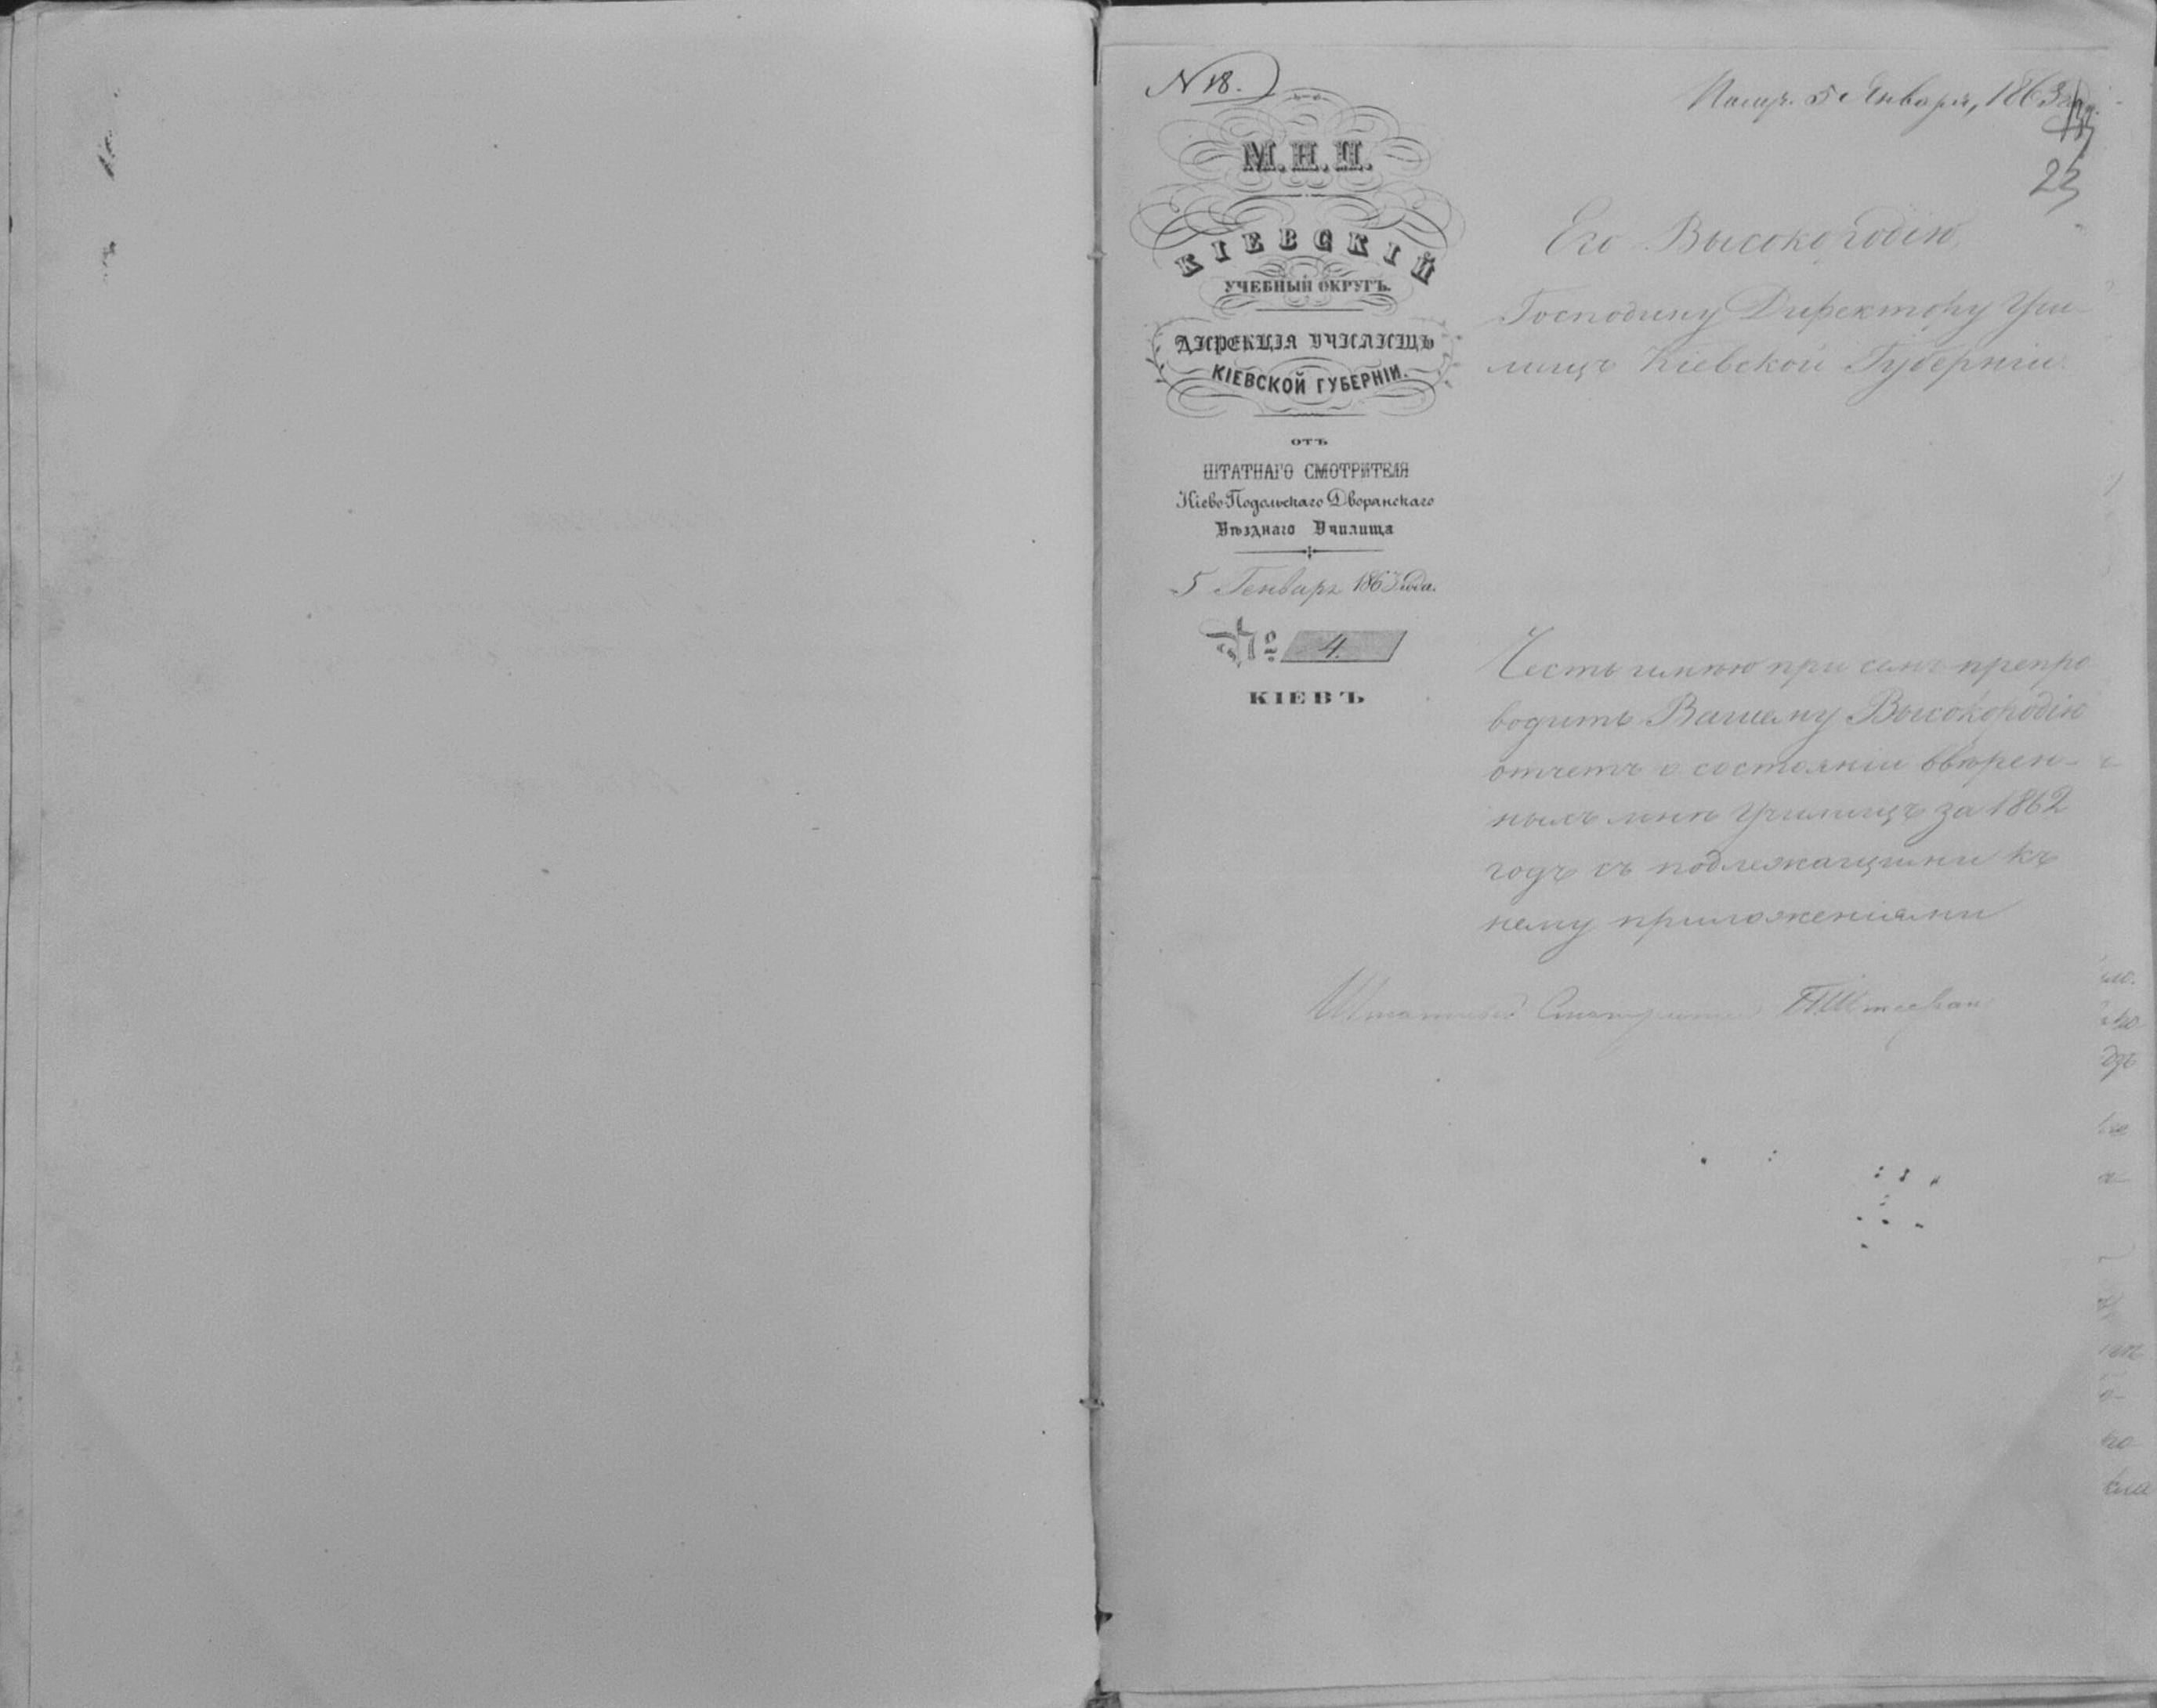 N 18.
Получ. 5 Января, 1863 года.
23
М. Н. П.
КІЕВСКІЙ
УЧЕБНЫЙ ОКРУГЪ.
ДИРЕКЦІЯ УЧИЛИЩЪ
КІЕВСКОЙ ГУБЕРНІИ.
отъ
ШТАТНАГО СМОТРИТЕЛЯ
Кіево Подольскаго Дворянскаго
Уѣзднаго Училища
5 Генваря 1863 года.
№ 4.
КІЕВЪ
Его Высокородію
Господину Директору Учи-
лищъ Кіевской Губерніи.
Честь имѣю при семъ препро
водить Вашему Высокородію
отчетъ о состояніи ввѣрен-
ныхъ мнѣ Училищъ за 1862
годъ съ подлежащими къ
нему приложеніями
Штатный Смотритель